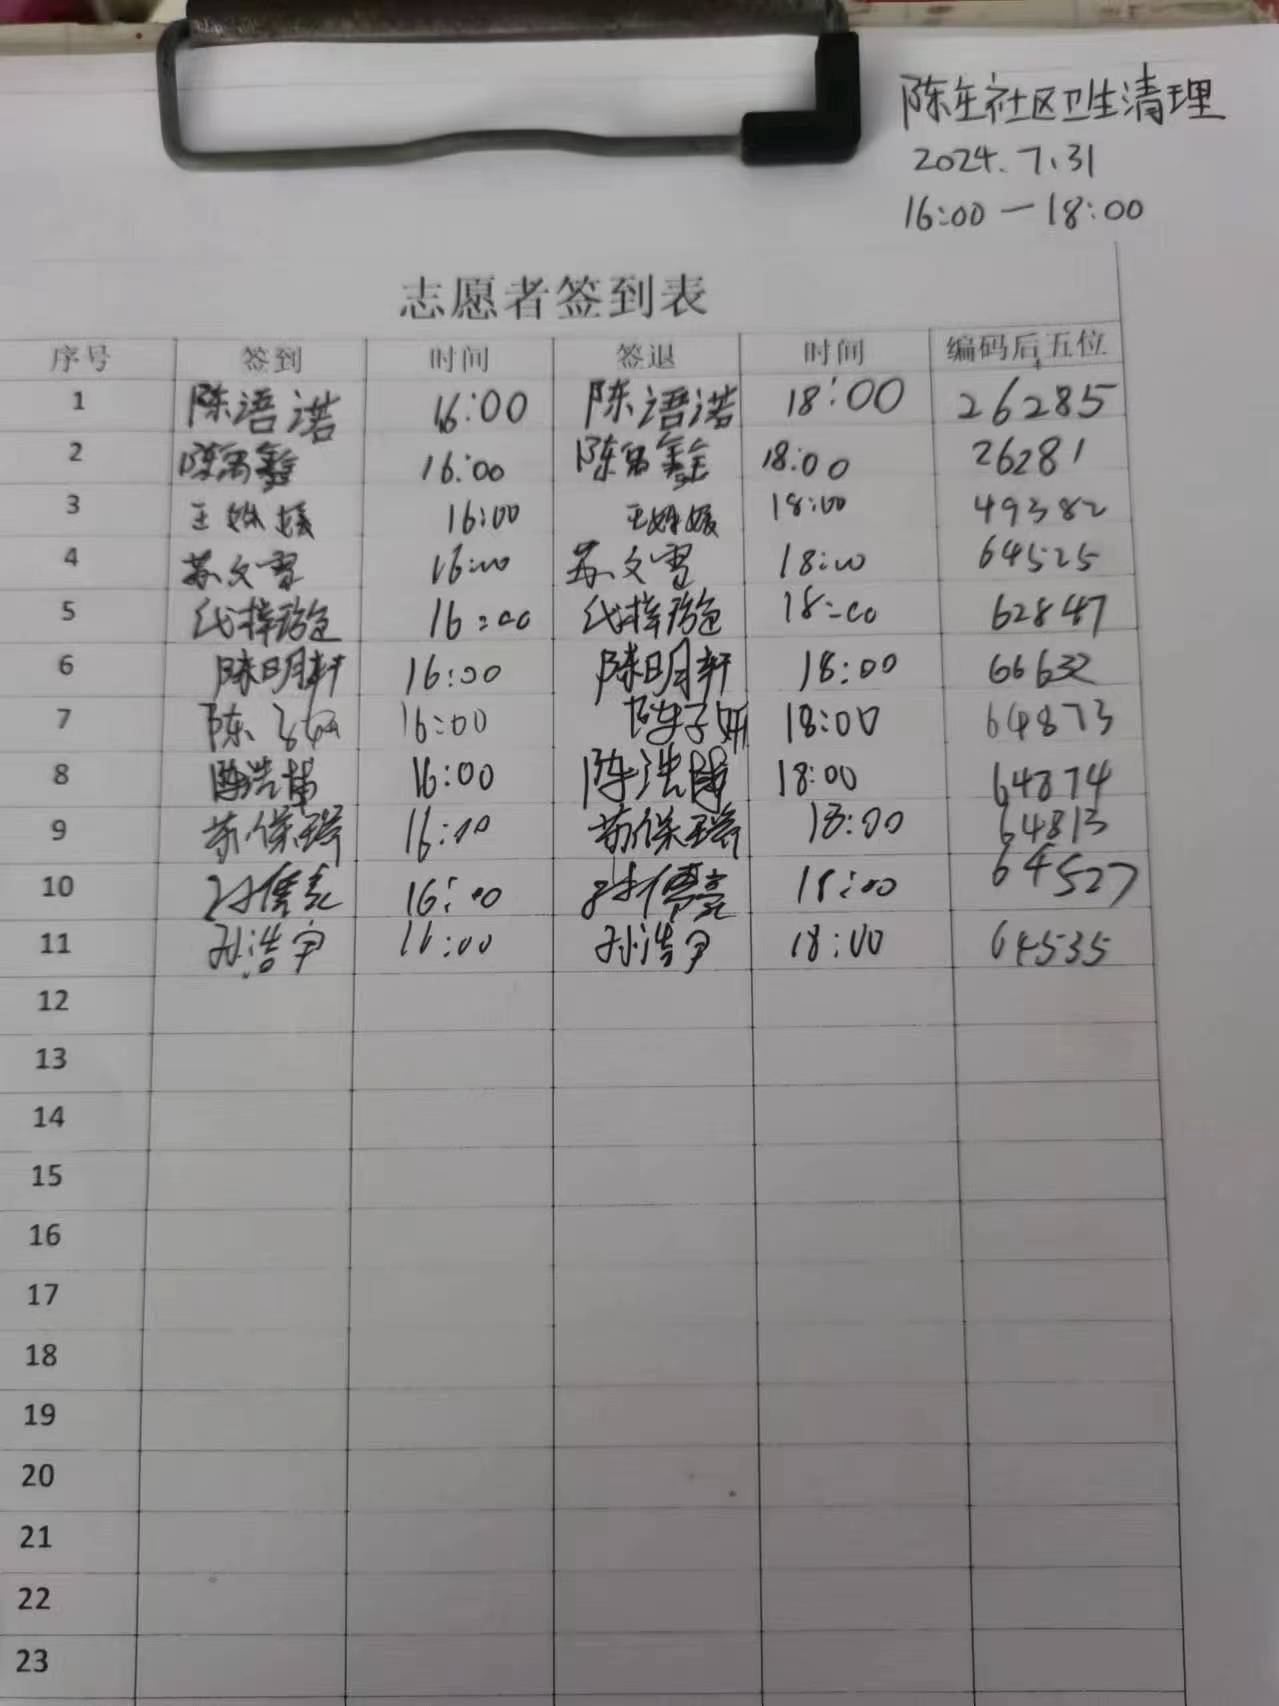 陈庄社区卫生清理
2024.7.31
16:00—18:00
志愿者签到表
序号 签到 时间 签退 时间 编码后五位
1 陈语诺 16:00 陈语诺 18:00 26285
2 16:00 18:00 26281
3 王 16:00 王 18:00 49382
4 苏文雪 16:00 苏文雪 18:00 64525
5 代梓 16:00 代梓 18:00 62847
6 陈明轩 16:00 陈明轩 18:00 66632
7 陈子妍 16:00 陈子妍 18:00 64873
8 陈浩 16:00 陈浩 18:00 64874
9 苏保瑞 16:00 苏保瑞 18:00 64813
10 16:00 18:00 64527
11 孙浩宇 16:00 孙浩宇 18:00 64535
12
13
14
15
16
17
18
19
20
21
22
23